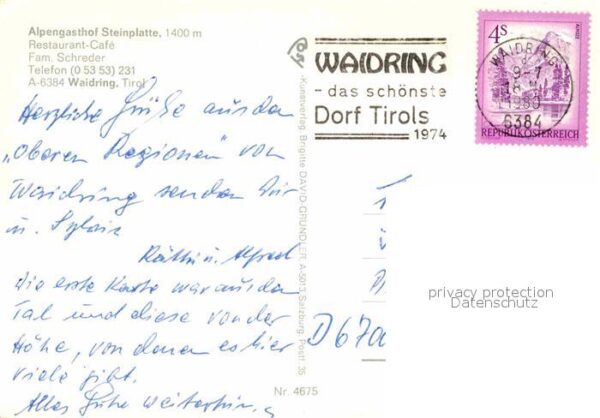 Alpengasthof Steinplatte, 1400 m
Restaurant-Café
Fam. Schreder
Telefon (0 53 53) 231
A-6384 Waidring, Tirol
Herzliche Grüße aus den
„oberen Regionen" von
Waidring senden Dir
u. Sylvia
Käthi u. Alfred
die erste Karte war aus dem
Tal und diese von der
Höhe, von denen es hier
viele gibt.
Alles Gute weiterhin
Nr. 4675
Kunstverlag Brigitte DAVID-GRÜNDLER, A-5013 Salzburg, Postf. 35
WAIDRING
- das schönste
Dorf Tirols
1974
4S
ALMSEE
REPUBLIK ÖSTERREICH
WAIDRING
1980
6384
D 67
privacy protection
Datenschutz